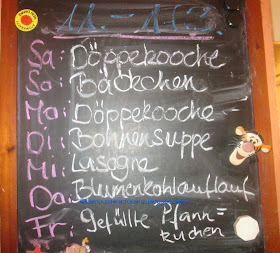 11. - 17.3.
Sa: Döppekooche
So: Bäckchen
Mo: Döppekooche -
Di: Bohnensuppe
Mi: Lasagne
Do: Blumenkohlauflauf
Fr: gefüllte Pfann=
kuchen